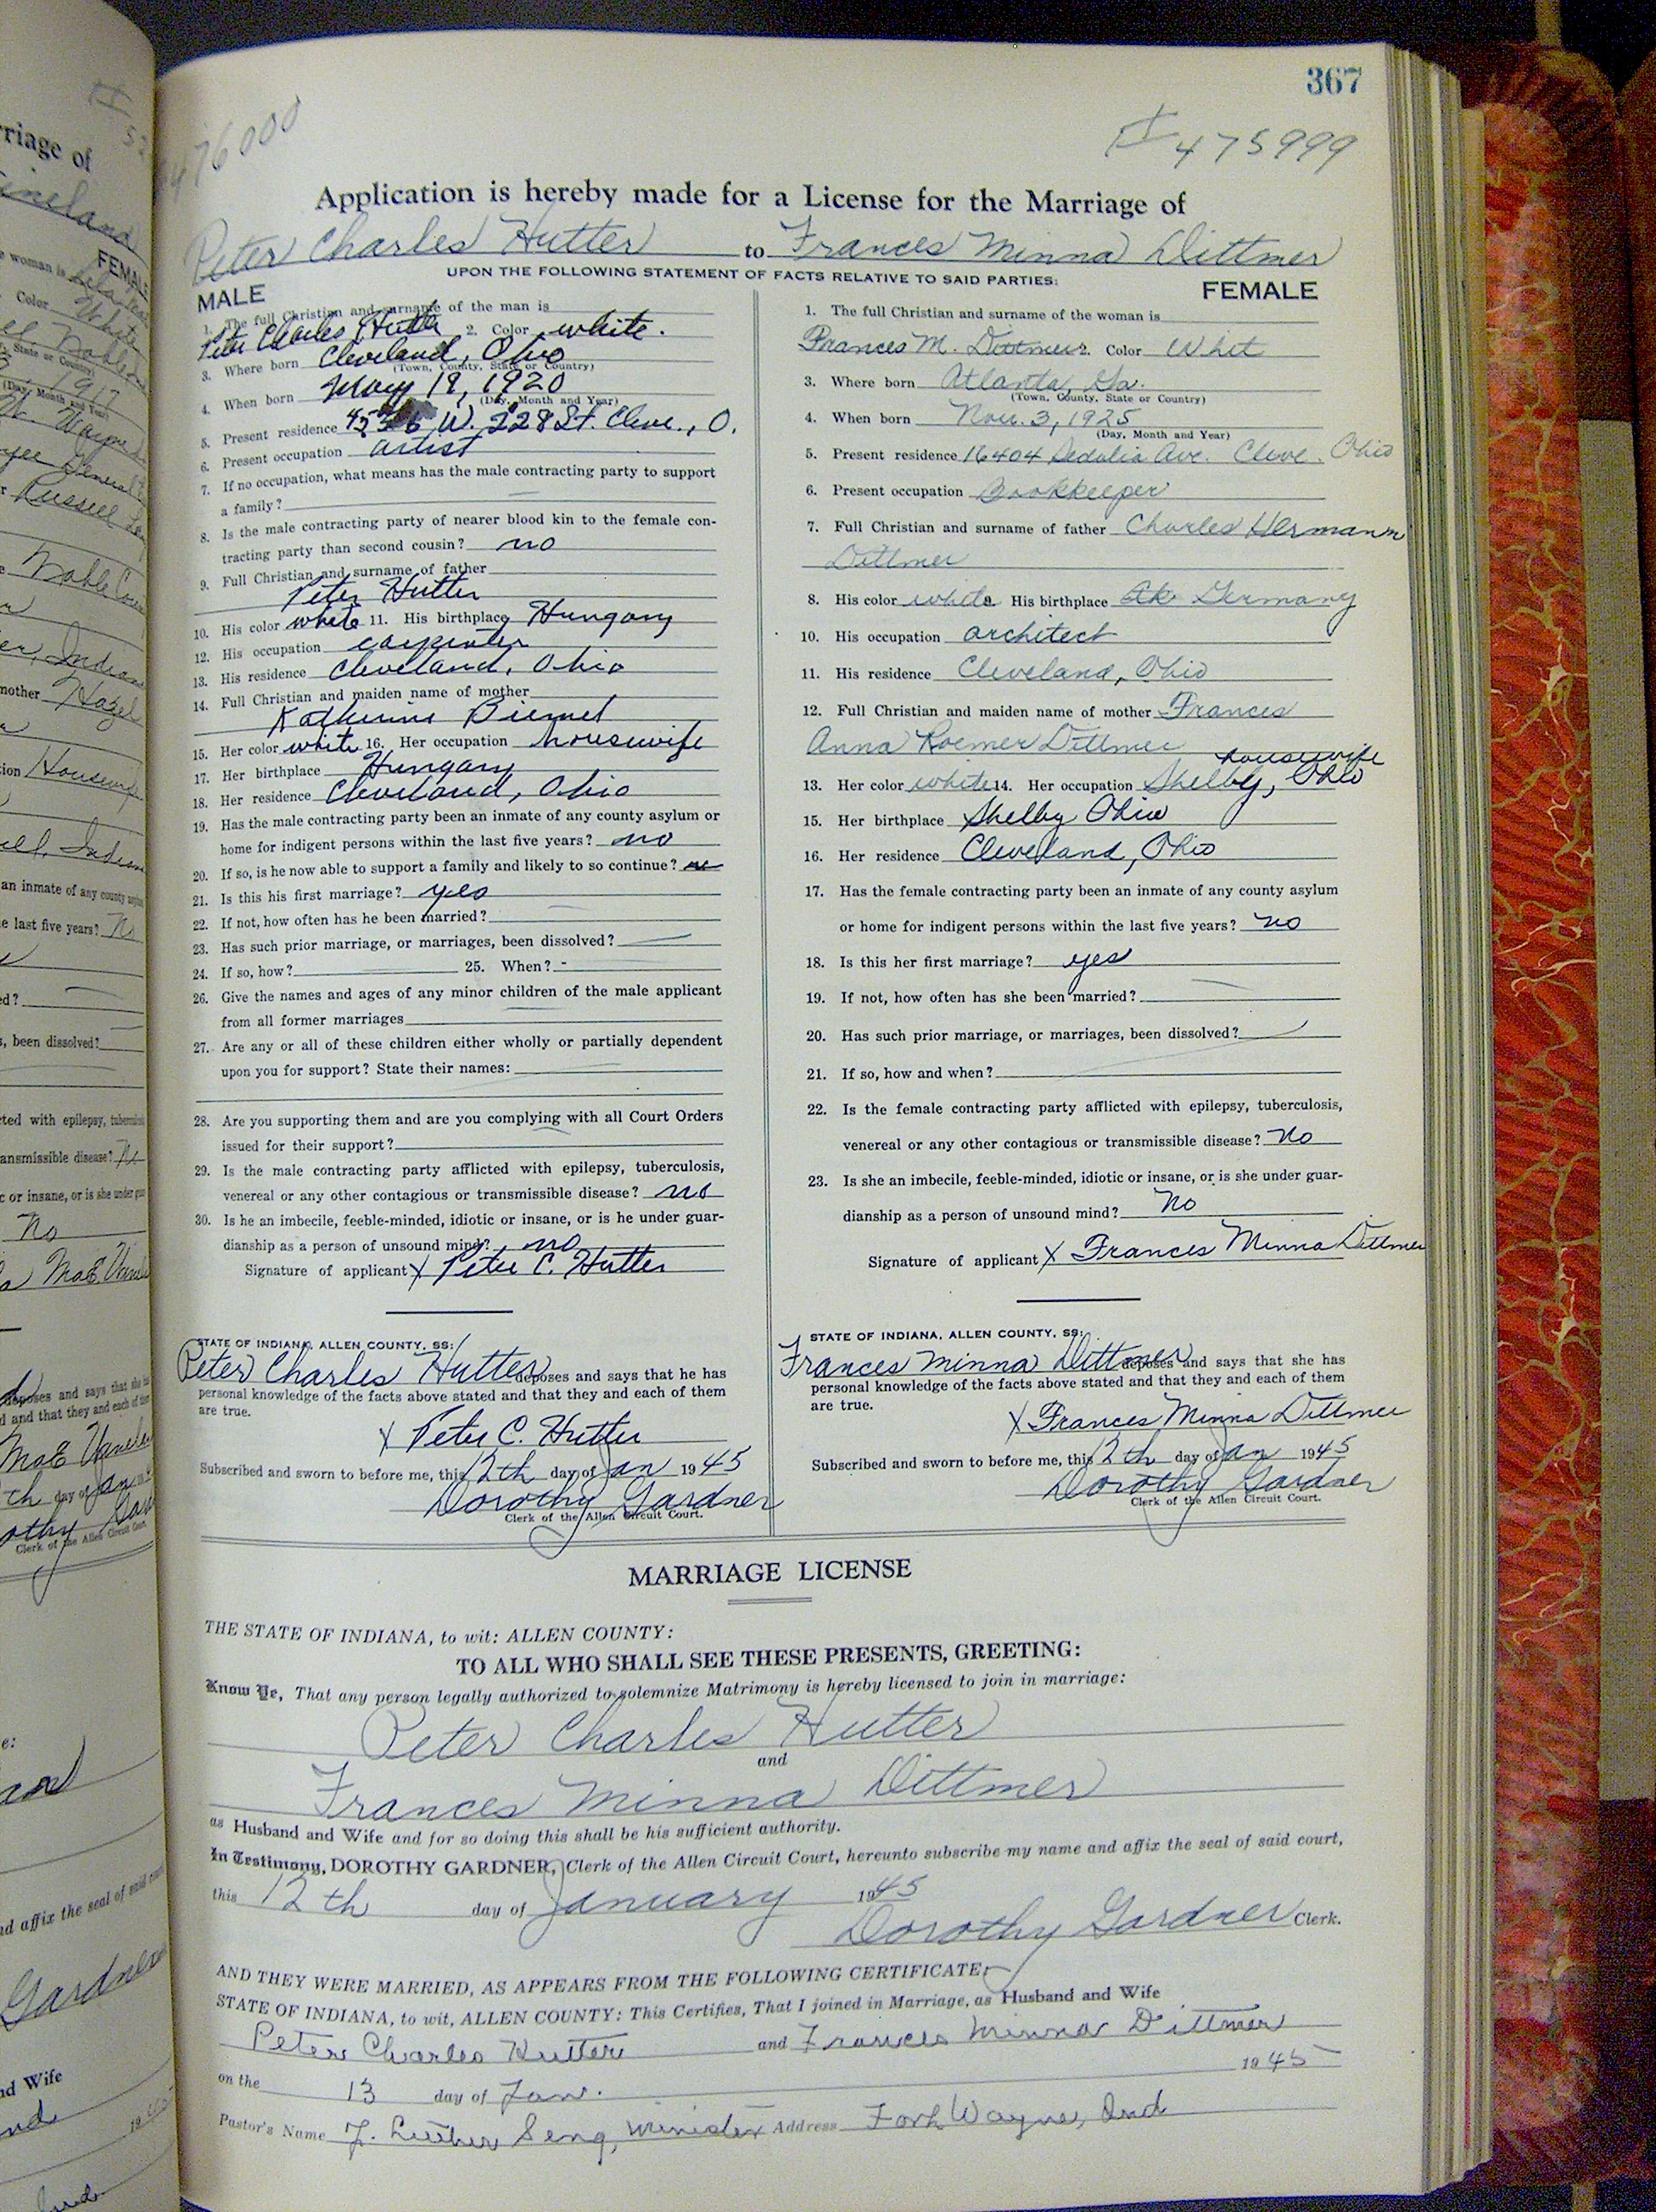 367
476000
# 475999
Application is hereby made for a License for the Marriage of
Peter Charles Hutter to Frances Minna Dittmer
UPON THE FOLLOWING STATEMENT OF FACTS RELATIVE TO SAID PARTIES:
MALE
1. The full Christian and surname of the man is
Peter Charles Hutter 2. Color white.
3. Where born Cleveland, Ohio
(Town, County, State or Country)
4. When born May 18, 1920
(Day, Month and Year)
5. Present residence W. 228 St. Cleve., O.
6. Present occupation artist
7. If no occupation, what means has the male contracting party to support
a family? —
8. Is the male contracting party of nearer blood kin to the female con-
tracting party than second cousin? no
9. Full Christian and surname of father
Peter Hutter
10. His color white 11. His birthplace Hungary
12. His occupation carpenter
13. His residence Cleveland, Ohio
14. Full Christian and maiden name of mother
Katherine
15. Her color white 16. Her occupation housewife
17. Her birthplace Hungary
18. Her residence Cleveland, Ohio
19. Has the male contracting party been an inmate of any county asylum or
home for indigent persons within the last five years? no
20. If so, is he now able to support a family and likely to so continue?
21. Is this his first marriage? yes
22. If not, how often has he been married? —
23. Has such prior marriage, or marriages, been dissolved? —
24. If so, how? 25. When? -
26. Give the names and ages of any minor children of the male applicant
from all former marriages
27. Are any or all of these children either wholly or partially dependent
upon you for support? State their names:
28. Are you supporting them and are you complying with all Court Orders
issued for their support?
29. Is the male contracting party afflicted with epilepsy, tuberculosis,
venereal or any other contagious or transmissible disease? no
30. Is he an imbecile, feeble-minded, idiotic or insane, or is he under guar-
dianship as a person of unsound mind? no
Signature of applicant X Peter C. Hutter
STATE OF INDIANA, ALLEN COUNTY, SS:
Peter Charles Hutter deposes and says that he has
personal knowledge of the facts above stated and that they and each of them
are true.
X Peter C. Hutter
Subscribed and sworn to before me, this 12th day of Jan 1945
Dorothy Gardner
Clerk of the Allen Circuit Court.
FEMALE
1. The full Christian and surname of the woman is
Frances M. Dittmer 2. Color Whit
3. Where born Atlanta, Ga.
(Town, County, State or Country)
4. When born Nov. 3, 1925
(Day, Month and Year)
5. Present residence 16404 Sedalia Ave. Cleve. Ohio
6. Present occupation Bookkeeper
7. Full Christian and surname of father Charles Hermann
Dittmer
8. His color white 9. His birthplace Germany
10. His occupation architect
11. His residence Cleveland, Ohio
12. Full Christian and maiden name of mother Frances
Anna Roemer Dittmer
housewife
13. Her color white 14. Her occupation Shelby, Ohio
15. Her birthplace Shelby Ohio
16. Her residence Cleveland, Ohio
17. Has the female contracting party been an inmate of any county asylum
or home for indigent persons within the last five years? no
18. Is this her first marriage? yes
19. If not, how often has she been married? —
20. Has such prior marriage, or marriages, been dissolved? —
21. If so, how and when?
22. Is the female contracting party afflicted with epilepsy, tuberculosis,
venereal or any other contagious or transmissible disease? No
23. Is she an imbecile, feeble-minded, idiotic or insane, or is she under guar-
dianship as a person of unsound mind? No
Signature of applicant X Frances Minna Dittmer
STATE OF INDIANA, ALLEN COUNTY, SS:
Frances Minna Dittmer deposes and says that she has
personal knowledge of the facts above stated and that they and each of them
are true.
X Frances Minna Dittmer
Subscribed and sworn to before me, this 12th day of Jan 1945
Dorothy Gardner
Clerk of the Allen Circuit Court.
MARRIAGE LICENSE
THE STATE OF INDIANA, to wit: ALLEN COUNTY:
TO ALL WHO SHALL SEE THESE PRESENTS, GREETING:
Know Ye, That any person legally authorized to solemnize Matrimony is hereby licensed to join in marriage:
Peter Charles Hutter
and
Frances Minna Dittmer
as Husband and Wife and for so doing this shall be his sufficient authority.
In Testimony, DOROTHY GARDNER, Clerk of the Allen Circuit Court, hereunto subscribe my name and affix the seal of said court,
this 12th day of January 1945
Dorothy Gardner Clerk.
AND THEY WERE MARRIED, AS APPEARS FROM THE FOLLOWING CERTIFICATE:
STATE OF INDIANA, to wit, ALLEN COUNTY: This Certifies, That I joined in Marriage, as Husband and Wife
Peter Charles Hutter and Frances Minna Dittmer
on the 13 day of Jan. 1945
Pastor's Name J. Luther Seng, minister Address Fort Wayne, Ind